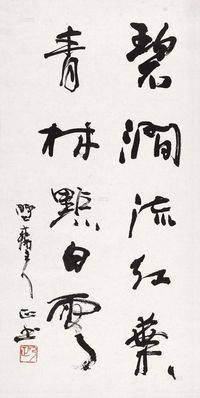 碧澗流紅葉
青林點白雲